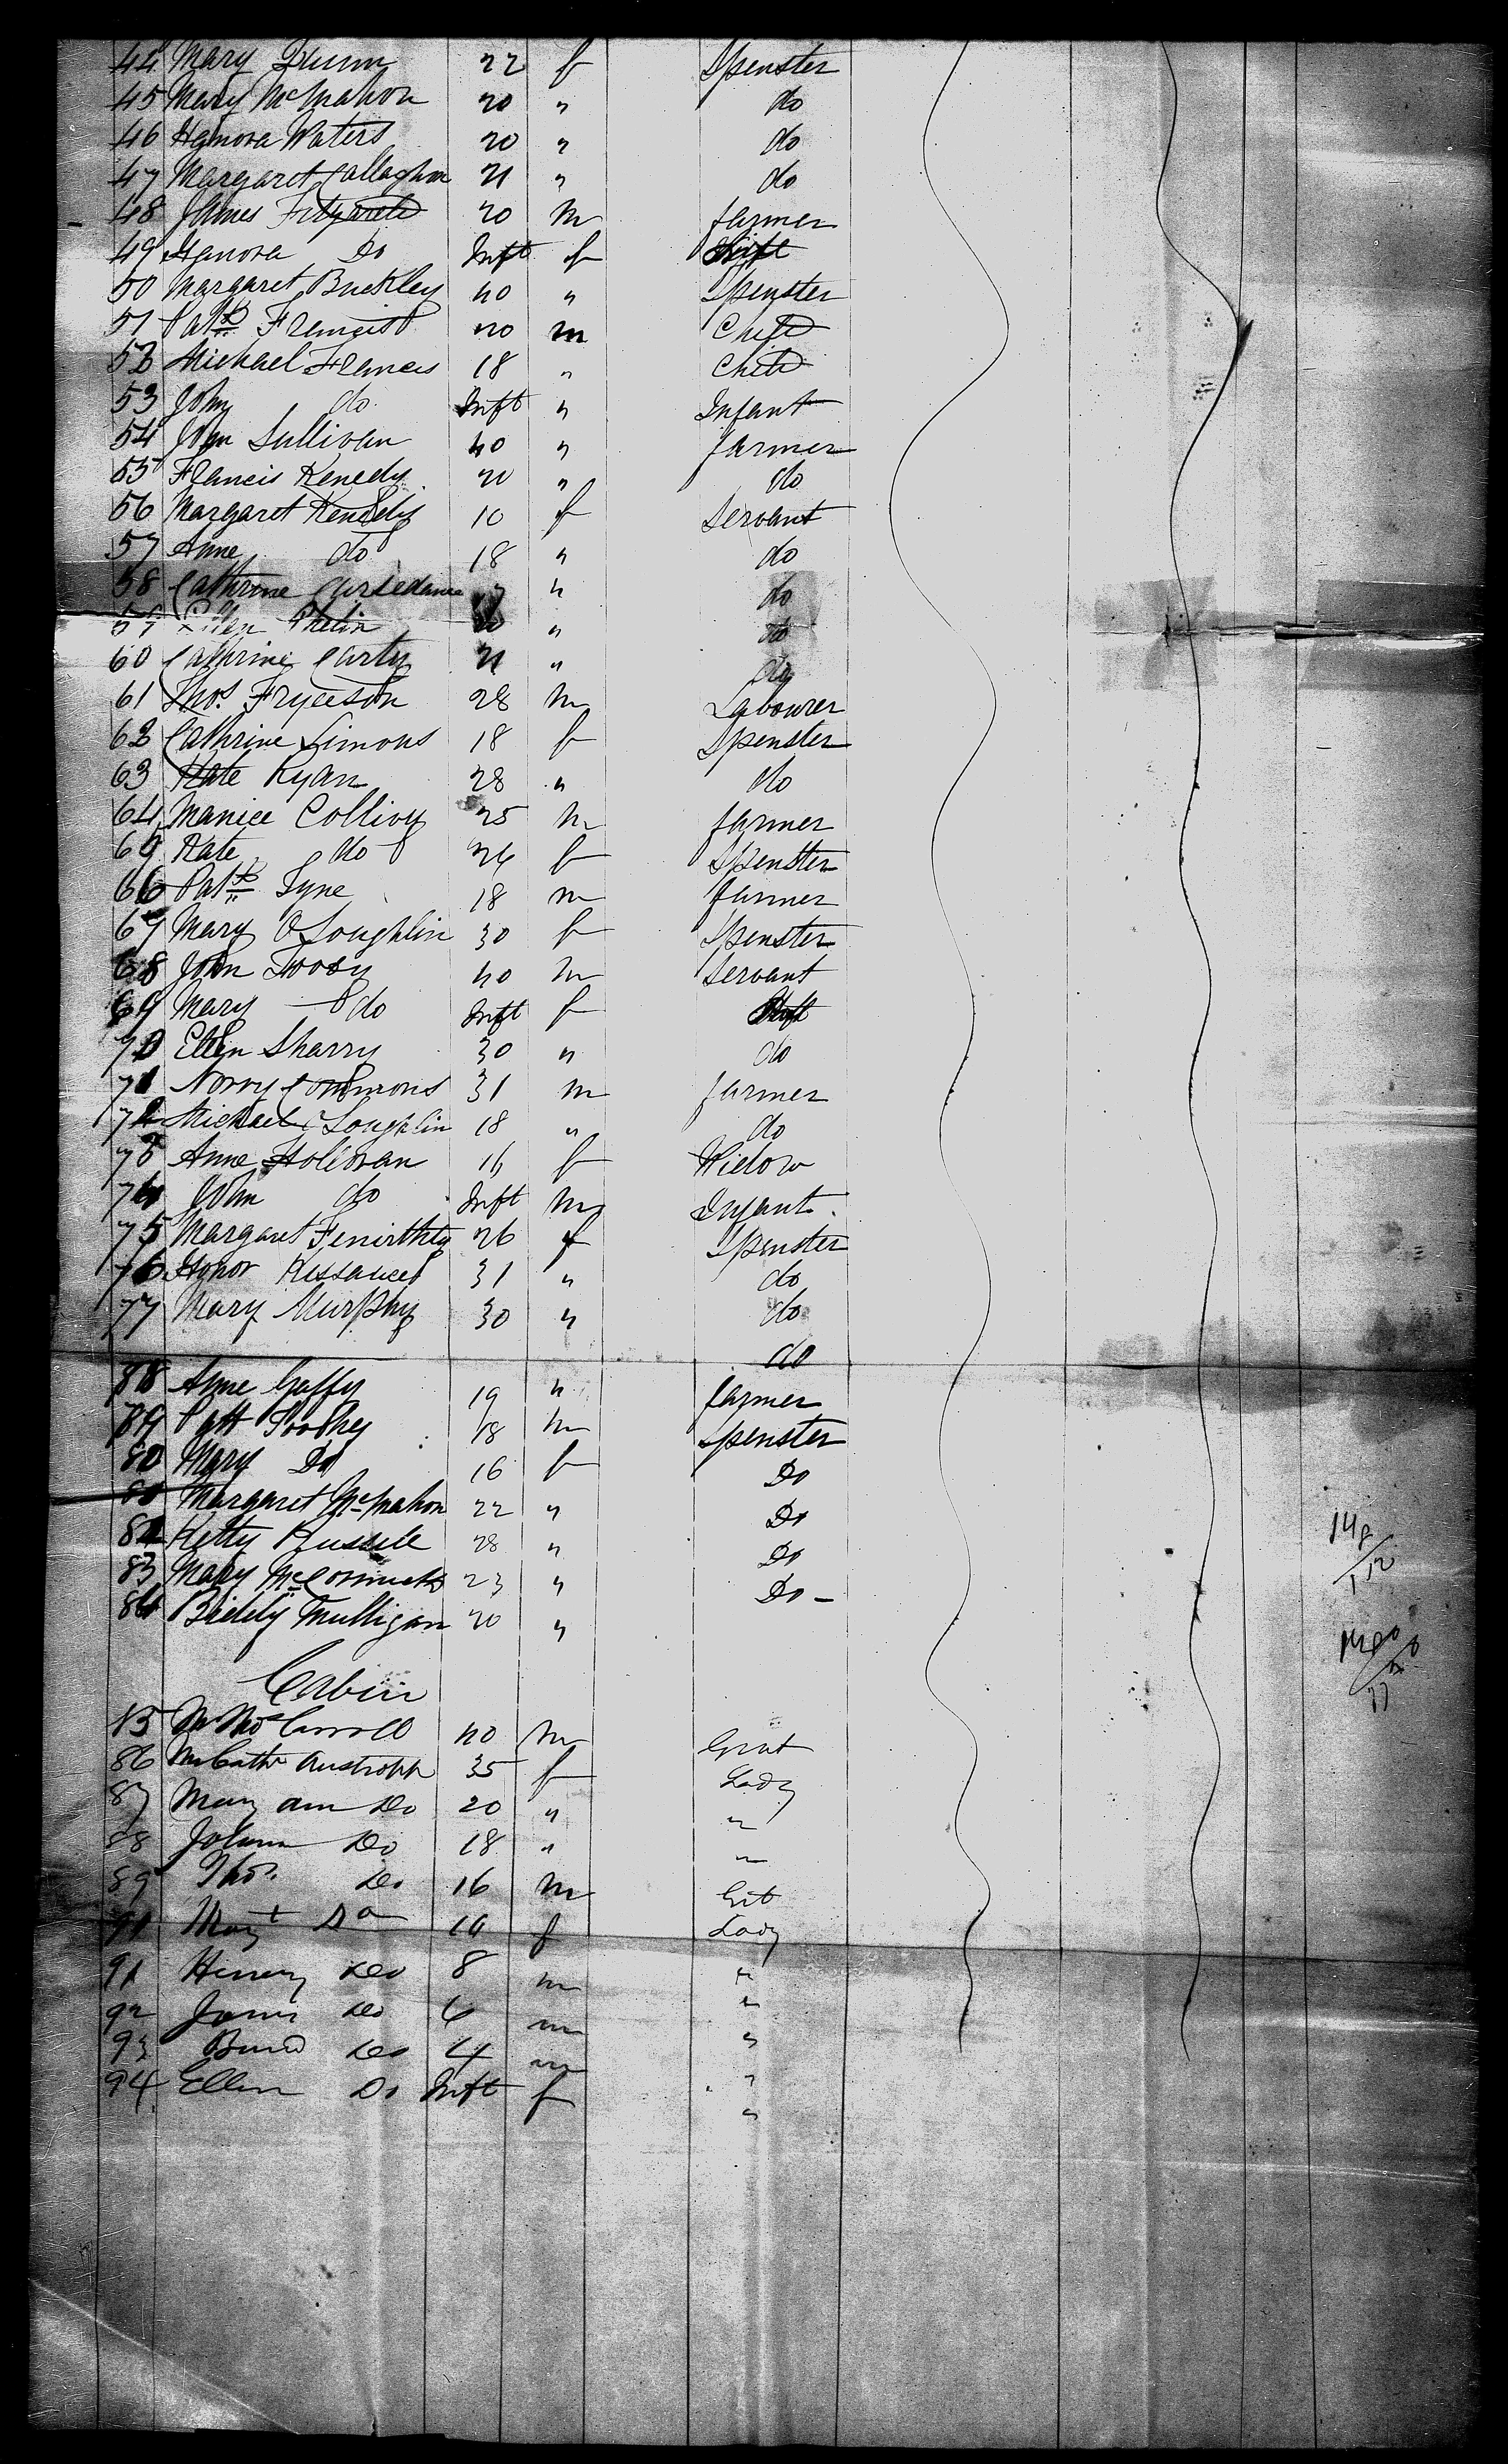 44 Mary Dunn 22 f Spenster
45 Mary McMahon 20 " do
46 Hanora Waters 20 " do
47 Margaret Callaghan 21 " do
48 James Fitzgareld 20 m farmer
49 Hanora Do Inft f
50 Margaret Buckley 40 " Spenster
51 Patk Francis 20 m Child
52 Michael Francis 18 " Child
53 John do Inft " Infant
54 John Sullivan 40 " farmer
55 Francis Kenedy 20 " do
56 Margaret Kenedy 10 f Servant
57 Anne do 18 " do
58 Cathrine " do
59 Phelin " do
60 Cathrine Carty 21 " do
61 Thos. Fryerson 28 m Labourer
62 Cathrine Simons 18 f Spenster
63 Kate Ryan 28 " do
64 Manice 25 m farmer
65 Kate do 26 f Spenster
66 Patk Lyne 18 m farmer
67 Mary O Loughlin 30 f Spenster
68 John Toosy 40 m Servant
69 Mary do Inft f
70 Ellen Sharry 30 " do
71 Commons 31 m farmer
72 Michael O Loughlin 18 " do
73 Anne Holloran 16 f Widow
74 John do Inft m Infant.
75 Margaret 26 f Spenster
76 Honor 31 " do
77 Mary Murphy 30 " do
78 Anne Gaffy 19 " do
79 Patt Toohey 18 m farmer
80 Mary Do 16 f Spenster
Margaret McMahon 22 " Do
82 Ketty Russele 28 " Do
83 Mary McCormick 23 " Do
84 Biddy Mulligan 20 " Do -
Cabin
85 Mr Thos Carroll 40 m Gent
86 Mrs Cathr 35 f Lady
87 Mary ann Do 20 " "
88 Do 18 " "
89 Thos. Do 16 m Gent
Margt Do 10 f Lady
91 Henry Do 8 m "
92 James Do 6 m "
93 Do 4 m "
94 Ellen Do Inft f "